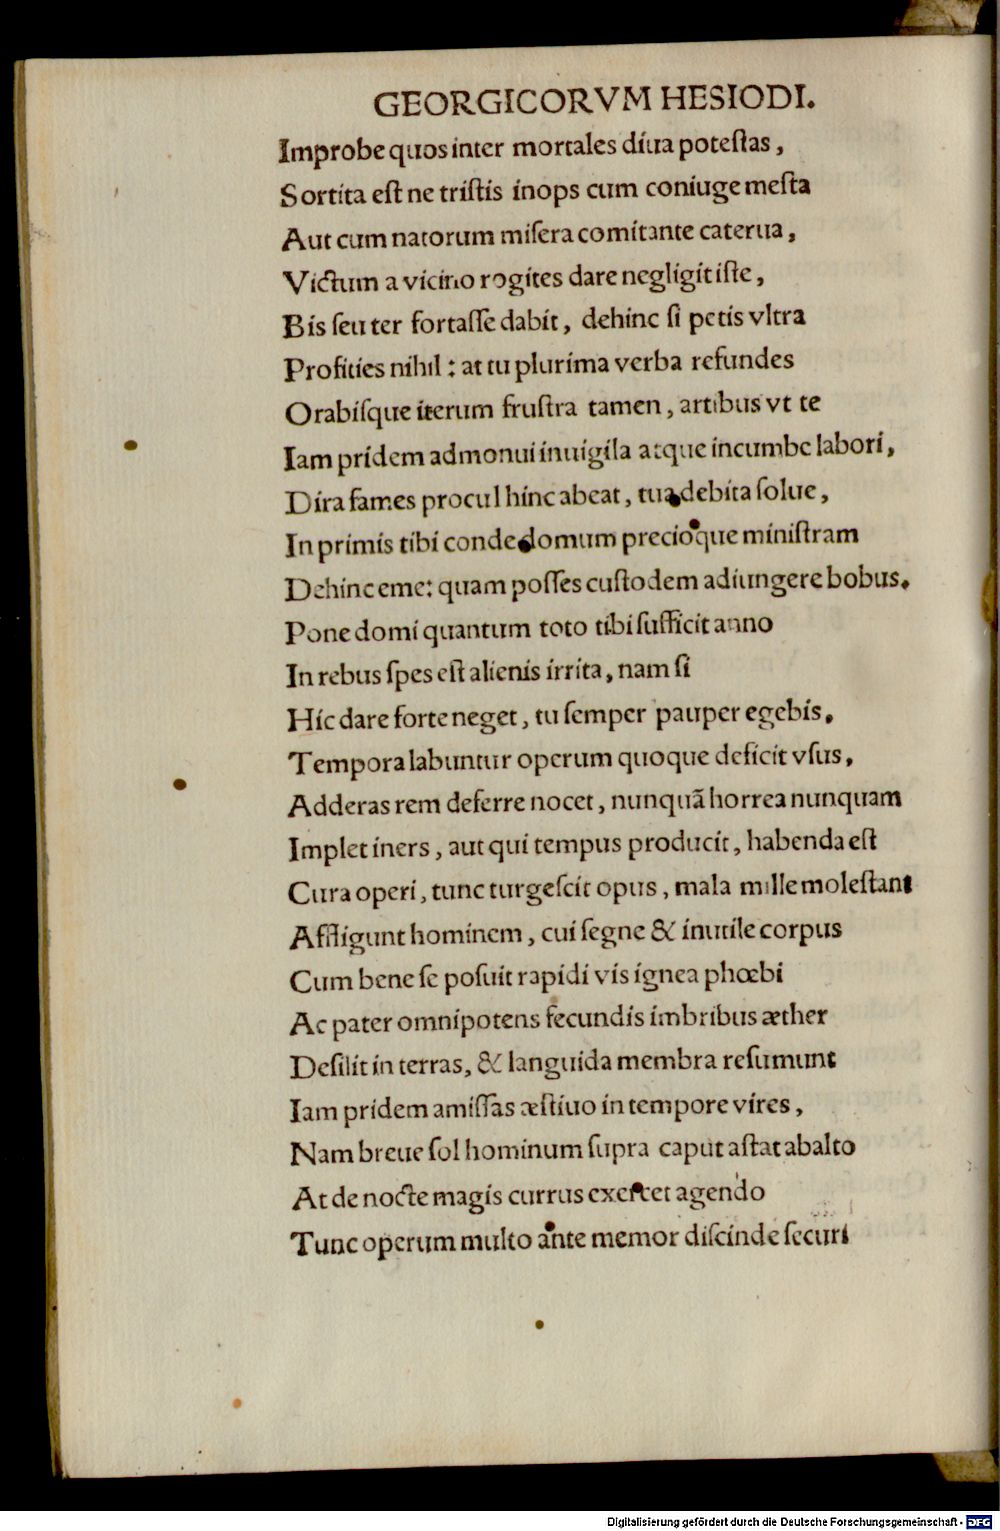 GEORGICORVM HESIODI.
Improbe quos inter mortales diua potestas,
Sortita est ne tristis inops cum coniuge mesta
Aut cum natorum misera comitante caterua,
Victum a vicino rogites dare negligit iste,
Bis seu ter fortasse dabit, dehinc si petis vltra
Profities nihil: at tu plurima verba refundes
Orabisque iterum frustra tamen, artibus vt te
Iam pridem admonui inuigila atque incumbe labori,
Dira fames procul hinc abeat, tua debita solue,
In primis tibi conde domum precioque ministram
Dehinc eme: quam posses custodem adiungere bobus.
Pone domi quantum toto tibi sufficit anno
In rebus spes est alienis irrita, nam si
Hic dare forte neget, tu semper pauper egebis.
Tempora labuntur operum quoque deficit vsus,
Adderas rem deferre nocet, nunquã horrea nunquam
Implet iners, aut qui tempus producit, habenda est
Cura operi, tunc turgescit opus, mala mille molestant
Affligunt hominem, cui segne & inutile corpus
Cum bene se posuit rapidi vis ignea phœbi
Ac pater omnipotens fecundis imbribus æther
Desilit in terras, & languida membra resumunt
Iam pridem amissas æstiuo in tempore vires,
Nam breue sol hominum supra caput astat ab alto
At de nocte magis currus exercet agendo
Tunc operum multo ante memor discinde securi
Digitalisierung gefördert durch die Deutsche Forschungsgemeinschaft - DFG